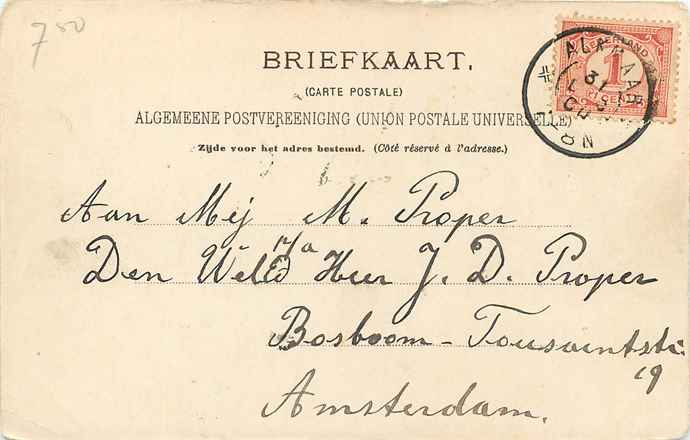 750
NEDERLAND
1
CENT
ALKMAAR
BRIEFKAART.
(CARTE POSTALE)
ALGEMEENE POSTVEREENIGING (UNION POSTALE UNIVERSELLE)
Zijde voor het adres bestemd. (Côté réservé à l'adresse.)
Aan Mej M. Proper
p/a
Den WelEd Heer J. D. Proper
Bosboom-Toussaintstr.
19
Amsterdam.